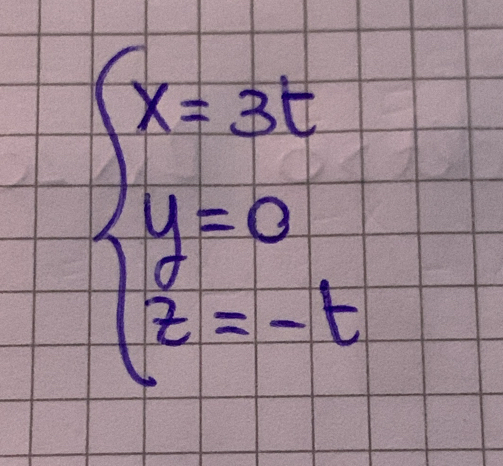 x = 3t
y = 0
z = -t